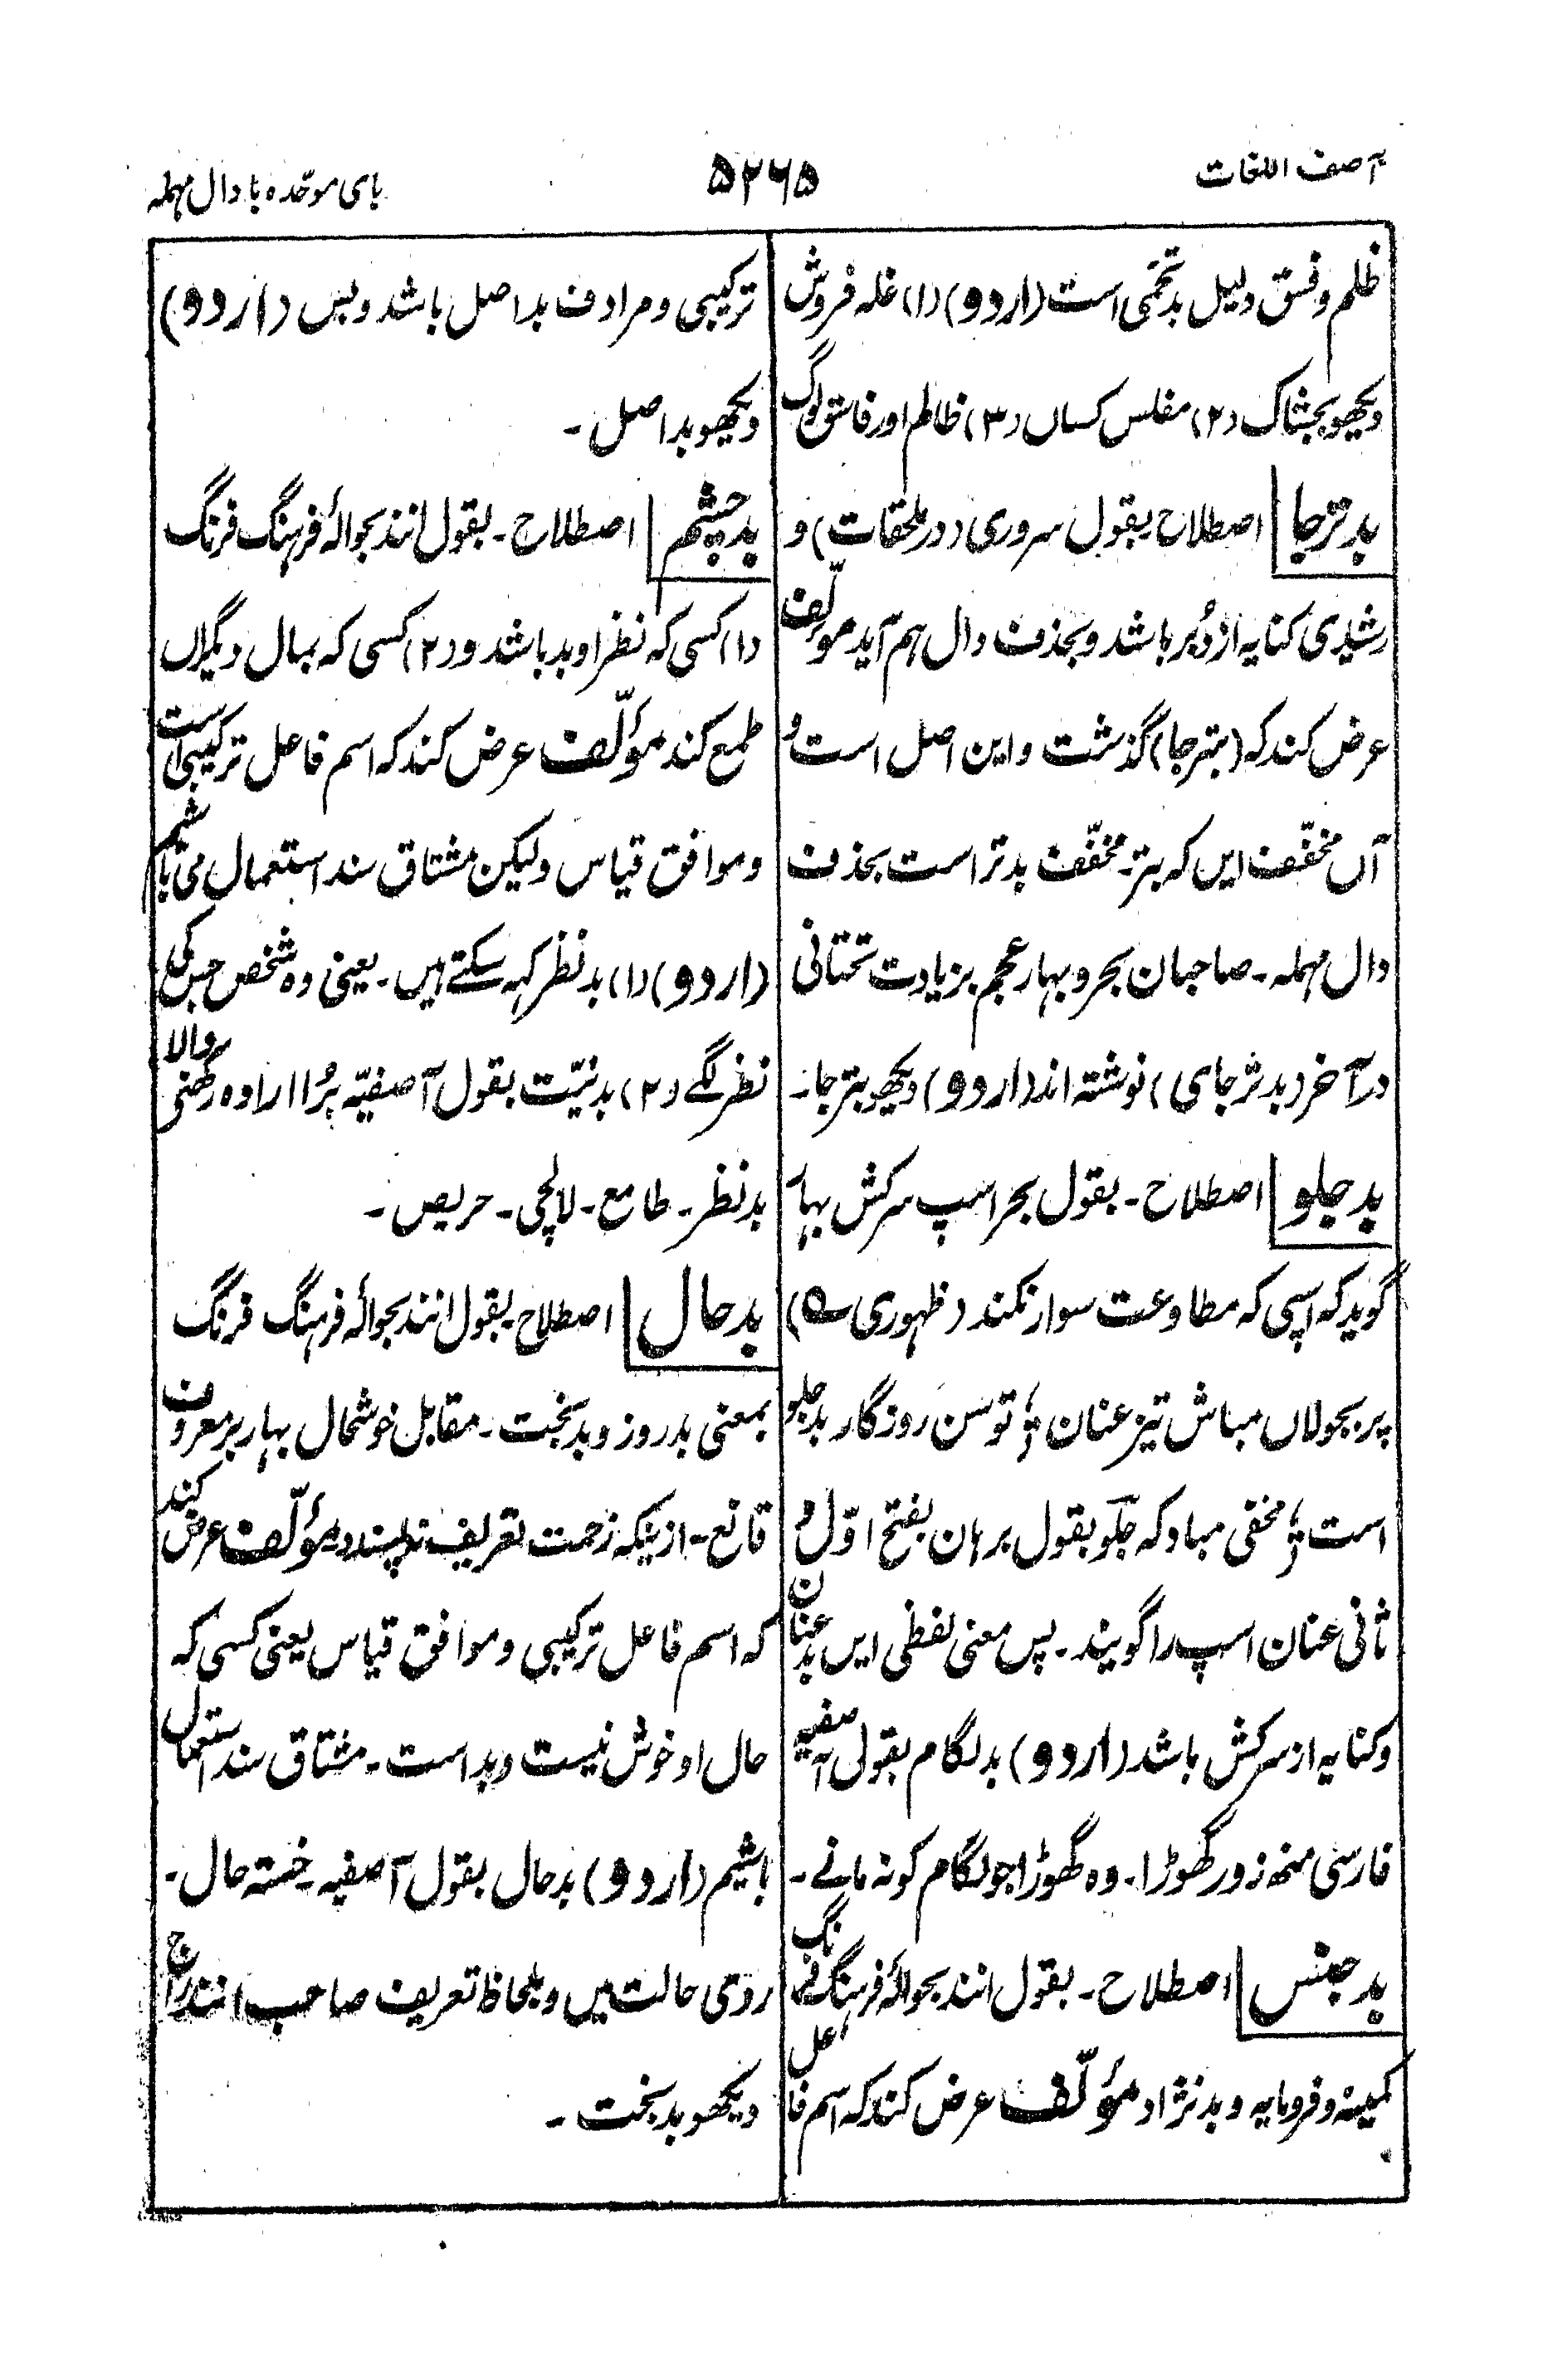 آصف اللغات
۵۲۶۵
بای موحّدہ با دال مہملہ
ظلم و فسق دلیل بدتخمی است (اردو) (۱) غلہ فروش
دیکھو بجشاک (۲) مفلس کساں (۳) ظالم اور فاسق لوگ
بدترجا اصطلاح بقول سروری (در ملحقات) و
رشیدی کنایہ از دُبر باشد و بحذف دال ہم آید مؤلّف
عرض کند کہ (بترجا) گذشت و این اصل است و
آں مخفّف ایں کہ بتر۔ مخفّف بدتر است بحذف
دال مہملہ۔ صاحبان بحر و بہار عجم بزیادت تحتانی
در آخر (بدترجای) نوشتہ اند (اردو) دیکھو بترجا۔
بدجلو اصطلاح۔ بقول بحر اسپ سرکش بہار
گوید کہ اسپی کہ مطاوعت سوار نکند (ظہوری ؎)
پر بجولاں مباش تیز عنان ؛ توسن روزگار بدجلو
است ؛ مخفی مباد کہ جلو بقول برہان بفتح اوّل و
ثانی عنان اسپ را گویند۔ پس معنی لفظی ایں بدعنان
و کنایہ از سرکش باشد (اردو) بدلگام بقول آصفیہ
فارسی منھ زور گھوڑا۔ وہ گھوڑا جو لگام کو نہ مانے۔
بدجنس اصطلاح۔ بقول انند بحوالۂ فرہنگ فرنگ
کمینہ و فرومایہ و بدنژاد مؤلّف عرض کند کہ اسم فاعل
ترکیبی و مرادف بداصل باشد و بس (اردو)
دیکھو بداصل۔
بدچشم اصطلاح۔ بقول انند بحوالۂ فرہنگ فرنگ
(۱) کسی کہ نظر او بد باشد و (۲) کسی کہ بمال دیگراں
طمع کند مؤلّف عرض کند کہ اسم فاعل ترکیبی است
و موافق قیاس ولیکن مشتاق سند استعمال می باشیم
(اردو) (۱) بدنظر کہہ سکتے ہیں۔ یعنی وہ شخص جس کی
نظر لگے (۲) بدنیّت بقول آصفیّہ بُرا ارادہ رکھنے والا
بدنظر۔ طامع۔ لالچی۔ حریص۔
بدحال اصطلاح بقول انند بحوالۂ فرہنگ فرنگ
بمعنی بدروز و بدبخت۔ مقابل خوشحال بہار بر معروف
قانع۔ ازینکہ زحمت تعریف نہ پسندد مؤلّف عرض کند
کہ اسم فاعل ترکیبی و موافق قیاس یعنی کسی کہ
حال او خوش نیست و بد است۔ مشتاق سند استعمال
باشیم (اردو) بدحال بقول آصفیہ۔ خستہ حال۔
ردّی حالت میں و بلحاظ تعریف صاحب انند راج
دیکھو بدبخت۔